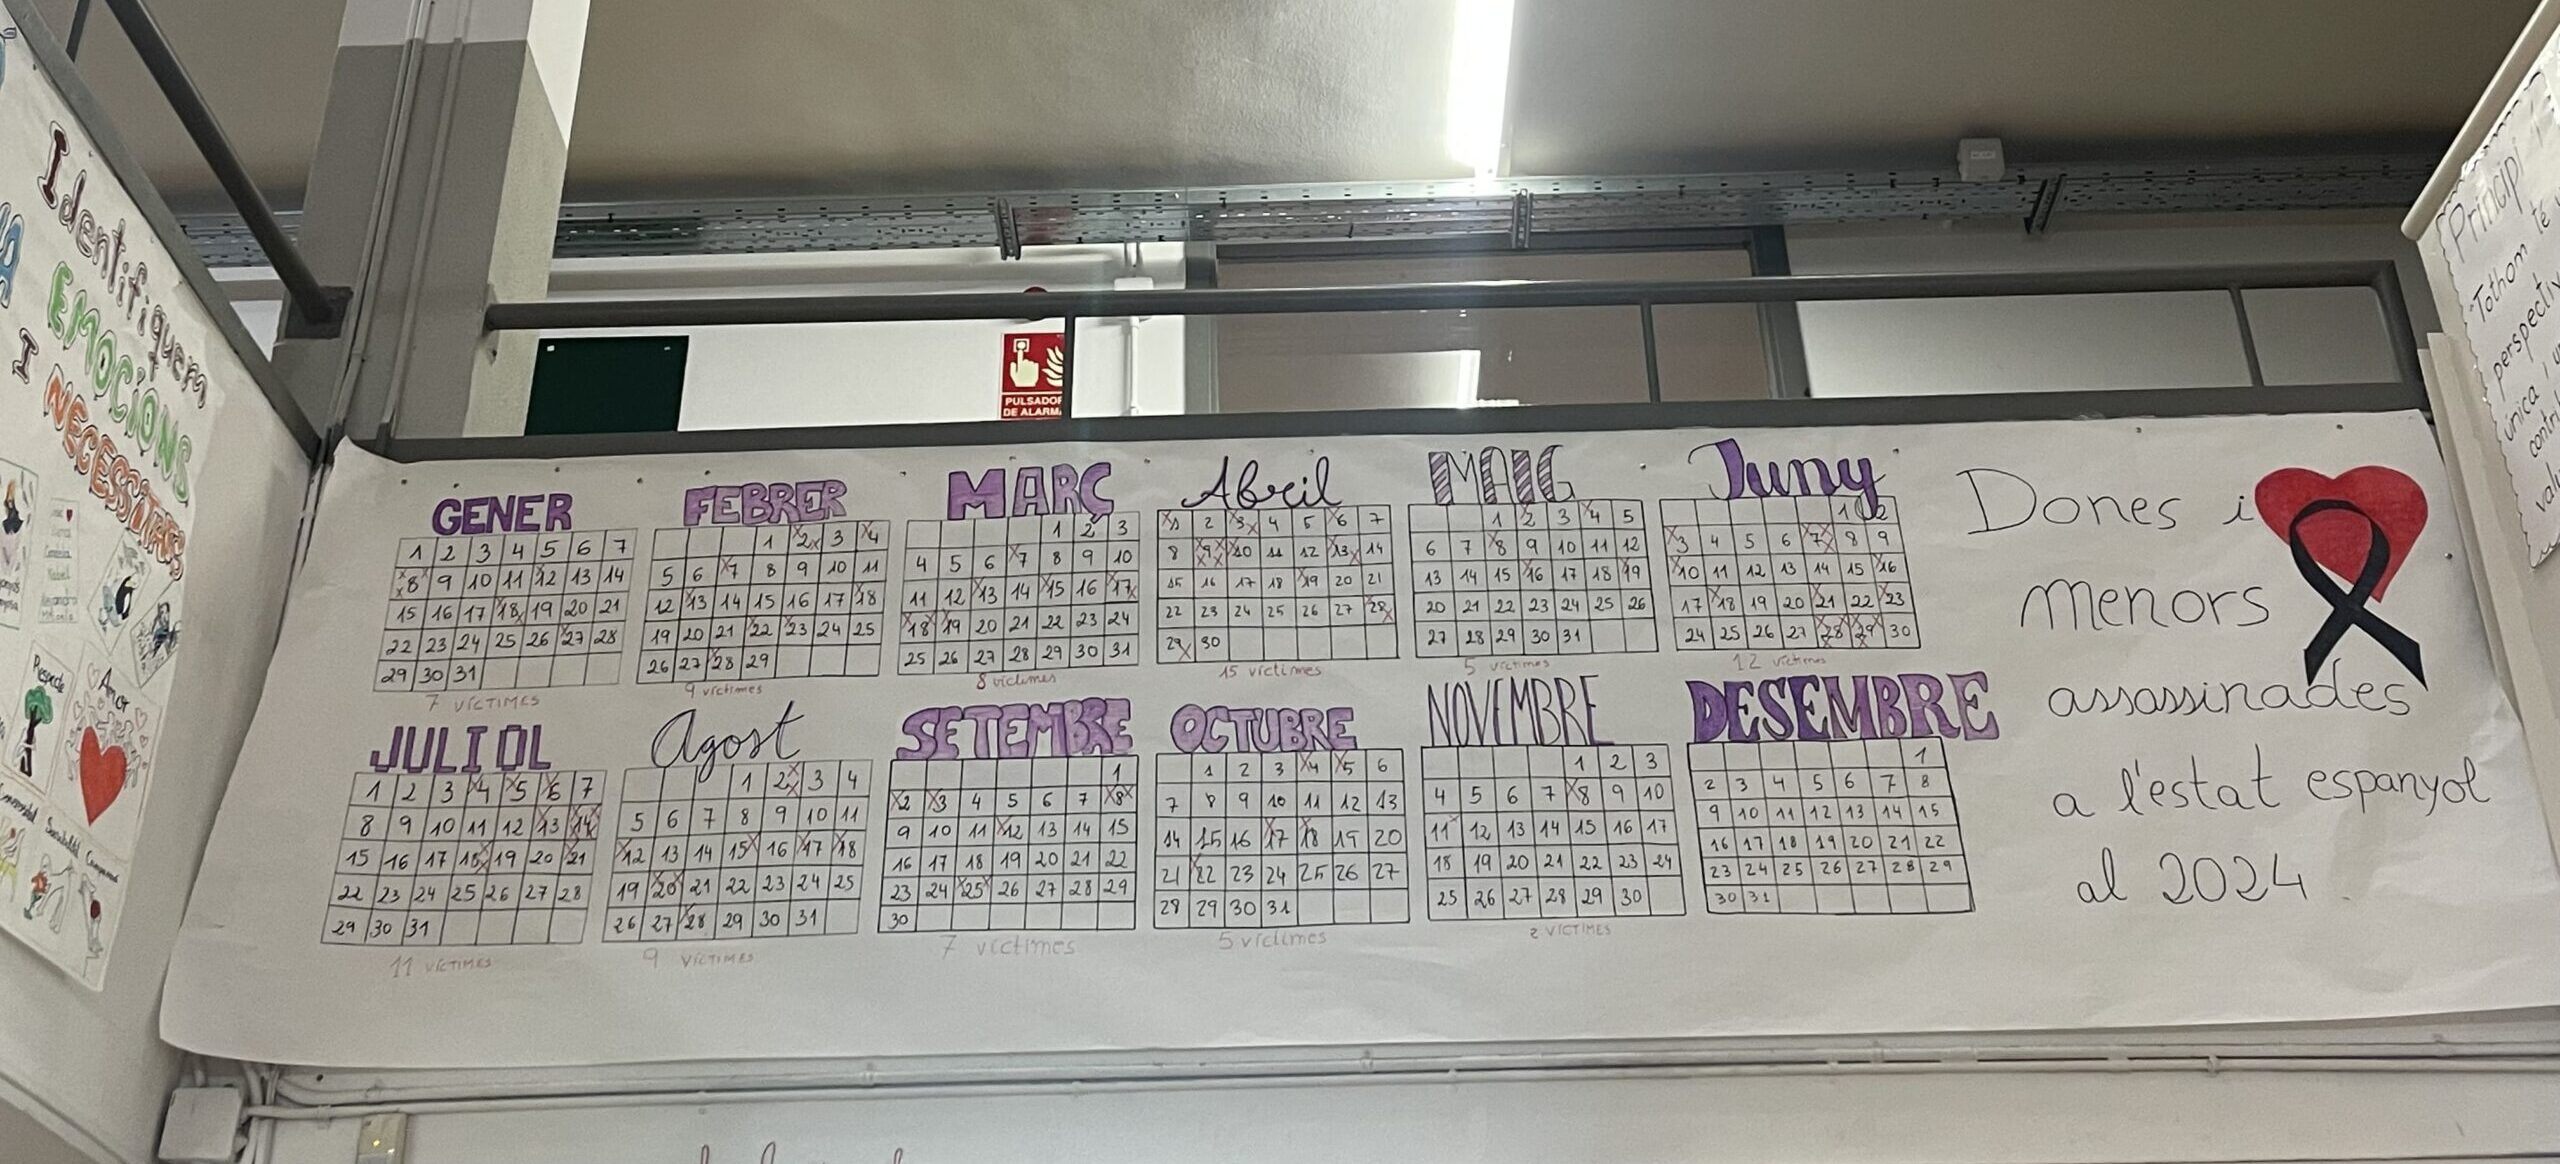 Identifiquem
EMOCIONS
I NECESSITATS
Respecte
Amor
PULSADOR
DE ALARMA
GENER
1 2 3 4 5 6 7
8 9 10 11 12 13 14
15 16 17 18 19 20 21
22 23 24 25 26 27 28
29 30 31
7 VÍCTIMES
FEBRER
1 2 3 4
5 6 7 8 9 10 11
12 13 14 15 16 17 18
19 20 21 22 23 24 25
26 27 28 29
9 víctimes
MARÇ
1 2 3
4 5 6 7 8 9 10
11 12 13 14 15 16 17
18 19 20 21 22 23 24
25 26 27 28 29 30 31
8 víctimes
Abril
1 2 3 4 5 6 7
8 9 10 11 12 13 14
15 16 17 18 19 20 21
22 23 24 25 26 27 28
29 30
15 víctimes
MAIG
1 2 3 4 5
6 7 8 9 10 11 12
13 14 15 16 17 18 19
20 21 22 23 24 25 26
27 28 29 30 31
5 víctimes
Juny
1 2
3 4 5 6 7 8 9
10 11 12 13 14 15 16
17 18 19 20 21 22 23
24 25 26 27 28 29 30
12 víctimes
JULIOL
1 2 3 4 5 6 7
8 9 10 11 12 13 14
15 16 17 18 19 20 21
22 23 24 25 26 27 28
29 30 31
11 VÍCTIMES
Agost
1 2 3 4
5 6 7 8 9 10 11
12 13 14 15 16 17 18
19 20 21 22 23 24 25
26 27 28 29 30 31
9 VÍCTIMES
SETEMBRE
1
2 3 4 5 6 7 8
9 10 11 12 13 14 15
16 17 18 19 20 21 22
23 24 25 26 27 28 29
30
7 víctimes
OCTUBRE
1 2 3 4 5 6
7 8 9 10 11 12 13
14 15 16 17 18 19 20
21 22 23 24 25 26 27
28 29 30 31
5 víctimes
NOVEMBRE
1 2 3
4 5 6 7 8 9 10
11 12 13 14 15 16 17
18 19 20 21 22 23 24
25 26 27 28 29 30
2 VÍCTIMES
DESEMBRE
1
2 3 4 5 6 7 8
9 10 11 12 13 14 15
16 17 18 19 20 21 22
23 24 25 26 27 28 29
30 31
Dones i
menors
assassinades
a l'estat espanyol
al 2024
Principi
Tothom té
única i